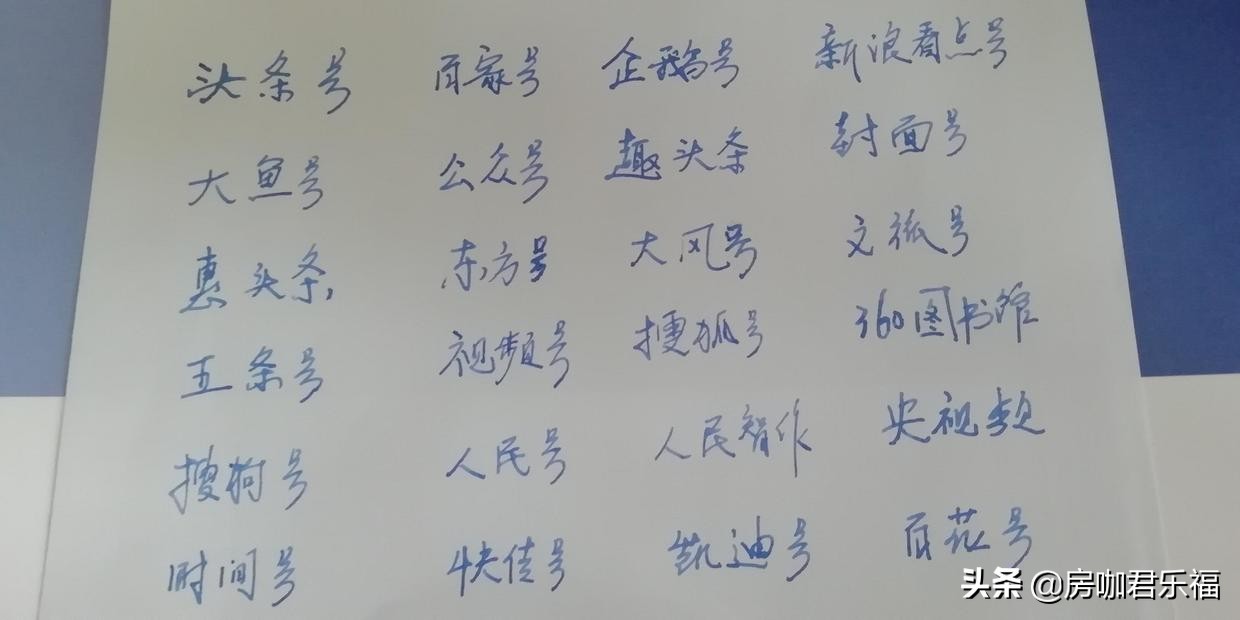 头条号 百家号 企鹅号 新浪看点号
大鱼号 公众号 趣头条 封面号
惠头条 东方号 大风号 文狐号
五条号 视频号 搜狐号 360图书馆
搜狗号 人民号 人民智作 央视频
时间号 快传号 凯迪号 百花号
头条 @房咖君乐福